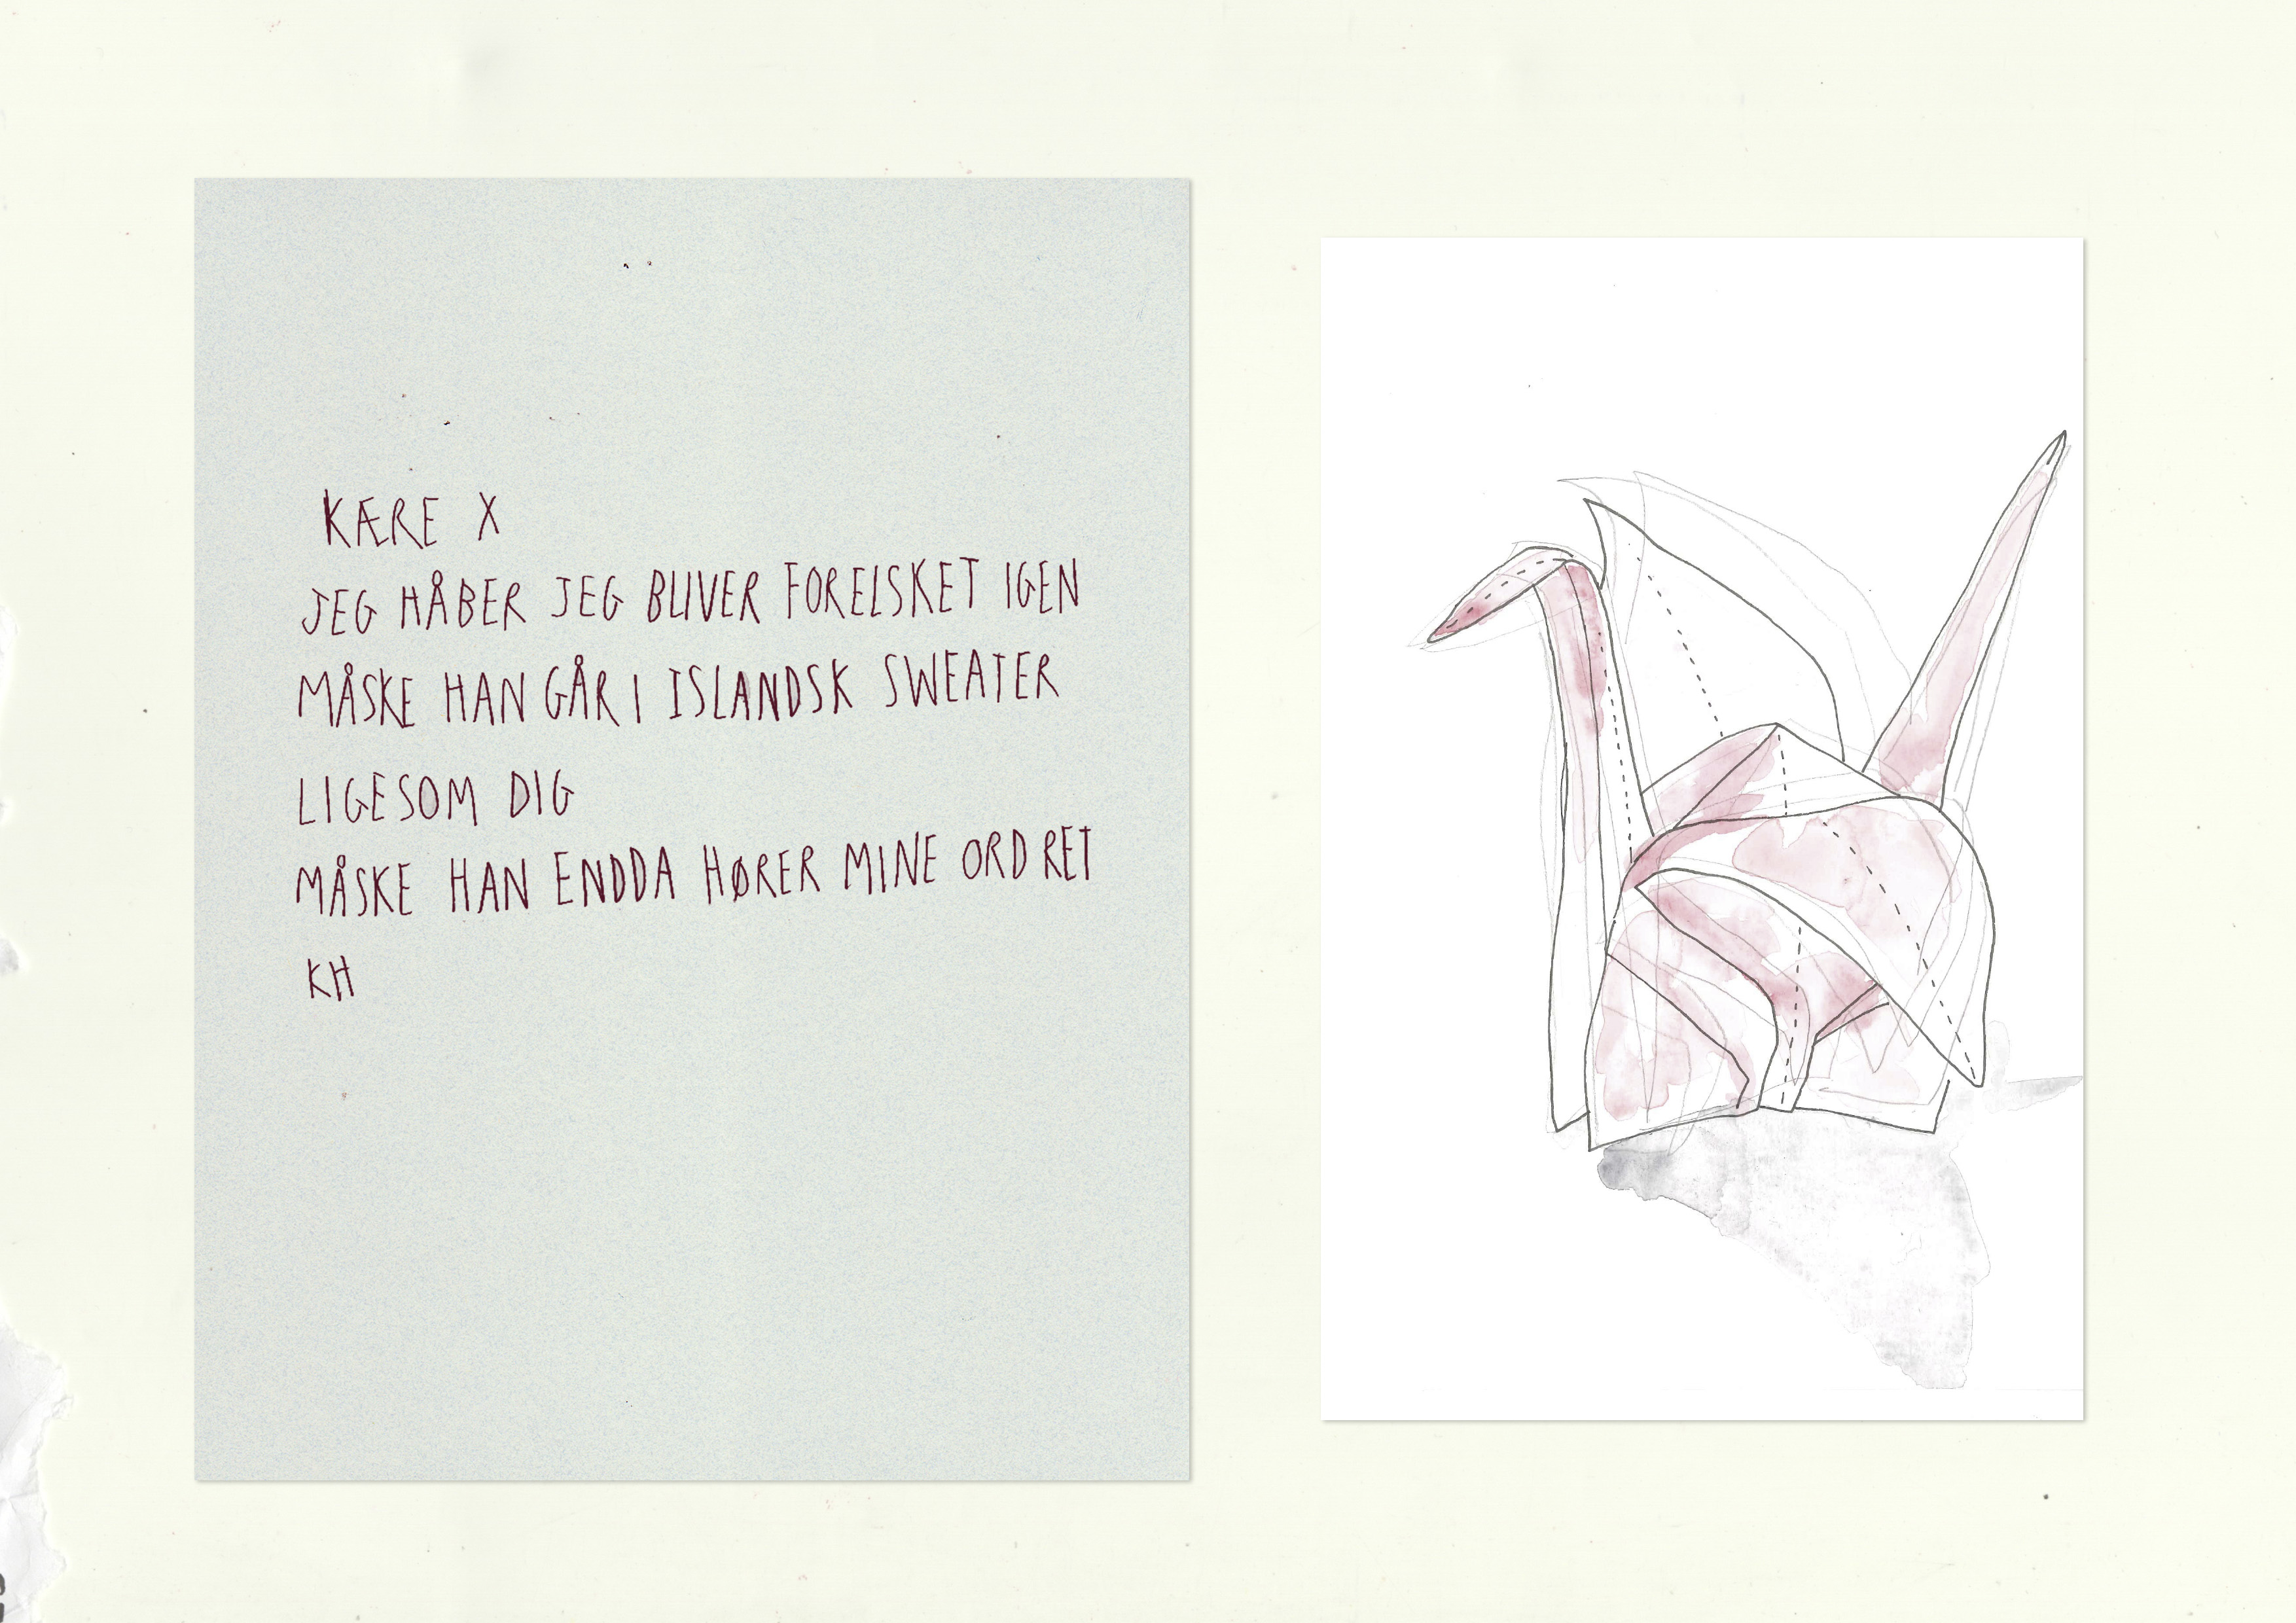 KÆRE X
JEG HÅBER JEG BLIVER FORELSKET IGEN
MÅSKE HAN GÅR I ISLANDSK SWEATER
LIGESOM DIG
MÅSKE HAN ENDDA HØRER MINE ORD RET
KH